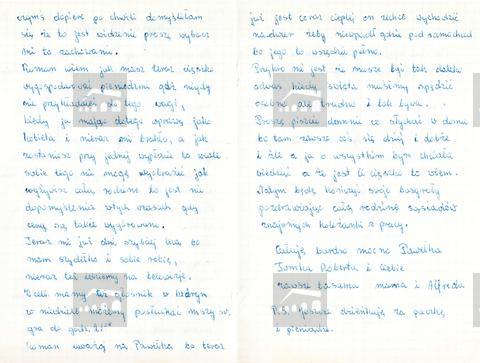 czymś dopiero po chwili domyślałam
się że to jest widzenie proszę wybacz
mi to zachowanie.
Roman wiem jak masz teraz ciężko
wygospodarować pieniędzmi gdyż nigdy
nie przykładałeś tego wagi,
kiedy ja mając dobrego oprawcę jako
kobieta i nieraz mi brakło, a jak
zostaniesz przy jednej wypłacie to wcale
sobie tego nie mogę wyobrazić jak
wyżywisz całą rodzinę to jest nie
dopomyślenia w tych czasach gdy
ceny są takie wygórowane.
Teraz mi już dni szybciej lecą bo
mam szydełko i sobie robię,
nieraz też idziemy na telewizję.
W celi mamy też głośnik w każdym
w niedzielę możemy posłuchać mszy św.
gra do godz.
Roman uważaj na Pawełka bo teraz
już jest coraz cieplej on zechce wychodzić
na dwór żeby niewpadł gdzie pod samochód
bo jego to wszędzie pełno.
Przykro mi jest że muszę być tak daleko
od was kiedy święta musimy spędzić
osobno ale trudno i tak bywa.
Proszę piszcie do mnie co słychać w domu
bo tam zawsze coś się dzieje i dobre
i złe a ja o wszystkim bym chciała
wiedzieć a że jest ci ciężko to wiem.
Na tym będę kończyć swoje bazgroły
pozdrawiając całą rodzinę sąsiadów
znajomych koleżanki z pracy.
Całuję bardzo mocno Pawełka
Tomka Roberta i Ciebie
zawsze ta sama mama i Alfreda
P.S. dziękuję za paczkę
i pieniądze.